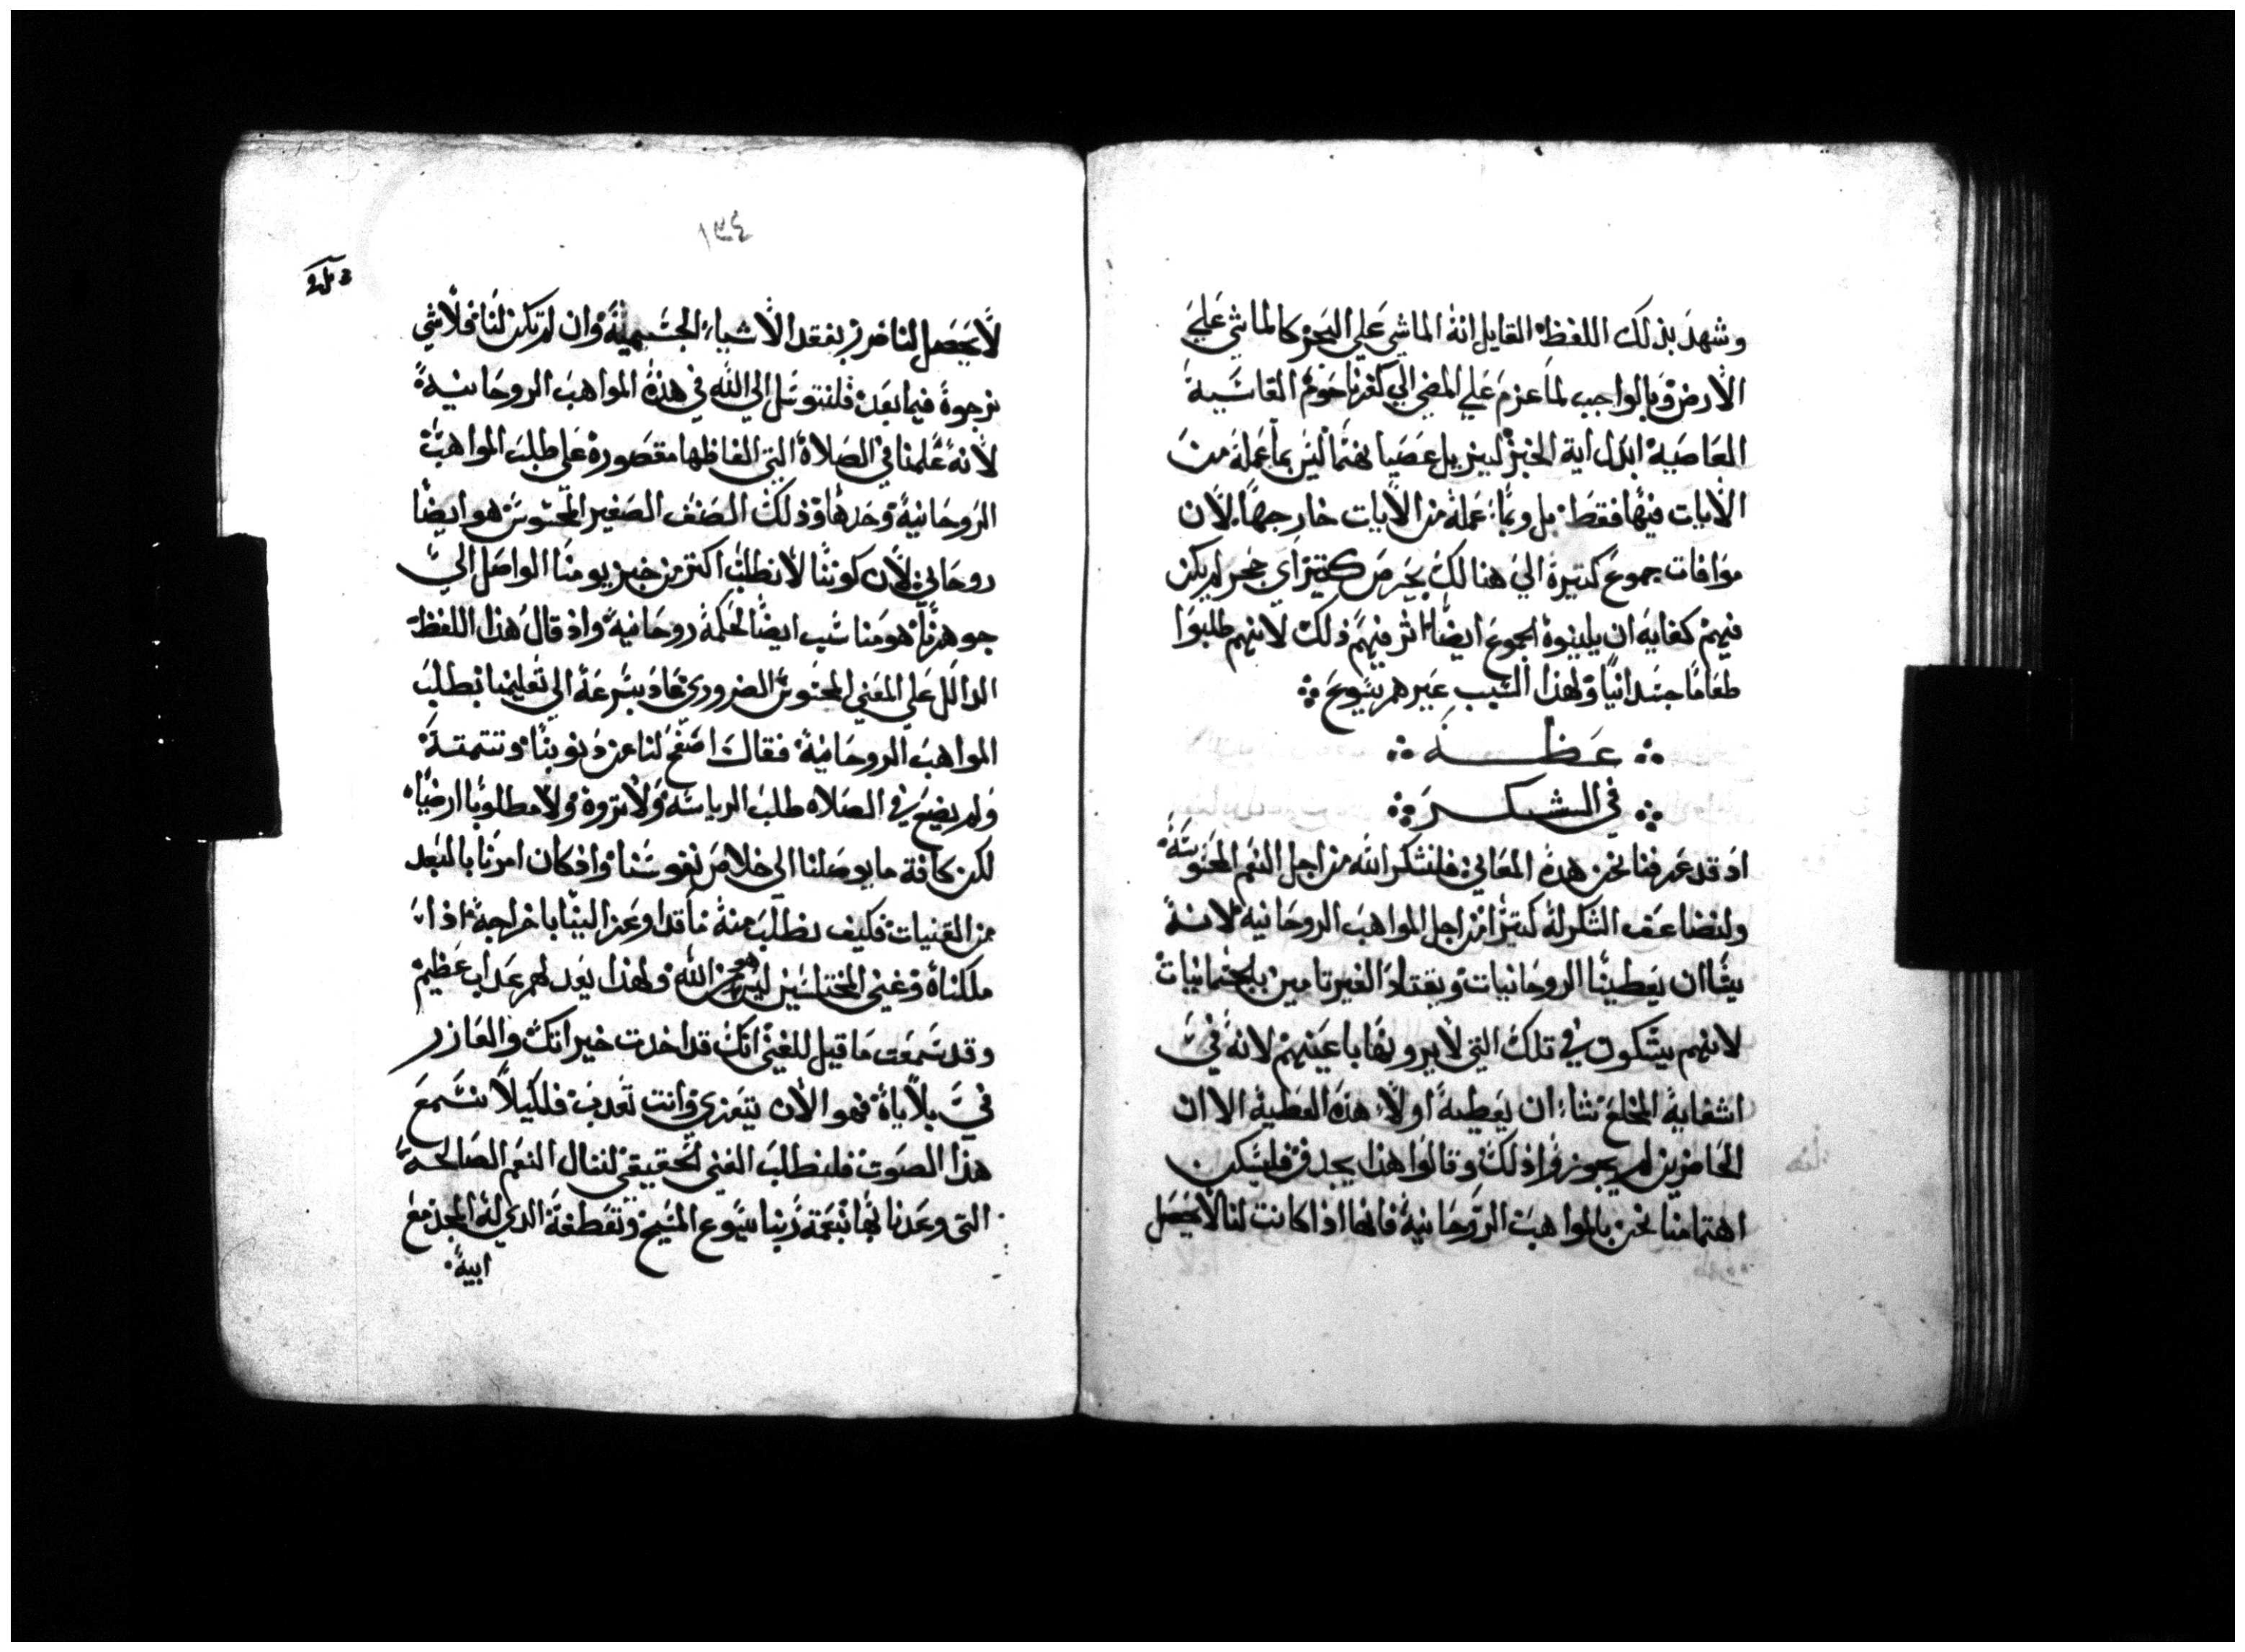 وشهد بذلك اللفظة القايل انه الماشي علي البحر كالماشي علي
الارض وبالواجب لما عزم علي المضي الي كفرناحوم القاسية
العاصية ابدل اية الخبز ليزيل عصيانها ليس بما عمله من
الايات فيها فقط بل وبما عمله من الايات خارجها لان
موافات جموع كتيرة الي هنالك بحرص كتيرا اي حجر لم يكن
فيهم كفايه ان يلينوه الجموع ايضا اثر فيهم ذلك لانهم طلبوا
طعاما جسدانيا ولهذا السبب عيرهم يسوع
عظة
في الشكر
اد قد عرفنا نحن هده المعاني فلنشكر الله من اجل النعم المحسوسة
ولنضاعف الشكر له كتيرا من اجل المواهب الروحانيه لانه
يشا ان يعطينا الروحانيات ويقتاد الغير تامين بالجسمانيات
لانهم يشكون في تلك التي لا يرونها باعينهم لانه في
اشفايه المخلع شاء ان يعطيه اولا هذه العطية الا ان
الحاضرين لم يجوزوا ذلك وقالوا هذا يجدف فليكن
اهتمامنا نحن بالمواهب الروحانية فانها اذا كانت لنا لا يحصل
١٣٤
لا يحصل لنا ضرر بفقد الاشياء الجسمية وان لم تكن لنا فلا شي
نرجوه فيما بعد فلنتوسل الي الله في هذه المواهب الروحانية
لانه علمنا في الصلاة التي الفاظها مقصورة علي طلب المواهب
الروحانية وحدها وذلك الصنف الصغير المحسوس هو ايضا
روحاني لان كوننا لا نطلب اكتر من خبز يومنا الواصل الي
جوهرنا هو مناسب ايضا لحكمة روحانية واذ قال هذا اللفظة
الدالل علي المعني المحسوس الضروري عاد بسرعة الي تعليمنا بطلب
المواهب الروحانية فقال اصفح لنا عن دنوبنا وتتمته
ولم يضع في الصلاه طلب الرياسة ولا تروة ولا مطلوبا ارضيا
لكن كافة ما يوصلنا الي خلاص نفوسنا واذ كان امرنا بالبعد
من القنيات فكيف نطلب منه ما قد اوعز الينا باخراجه اذا
ملكناه وغني المختلسين ليس هو من الله ولهذا يعد لهم عداب عظيم
وقد سمعت ما قيل للغني انك قد اخدت خيراتك والعازر
في بلاياه فهو الان يتعزي وانت تعدب فلكيلا نسمع
هذا الصوت فلنطلب الغني الحقيقي لننال النعم الصالحة
التي وعدنا بها بنعمة ربنا يسوع المسيح وتعطفة الدي له المجد مع
ابيه